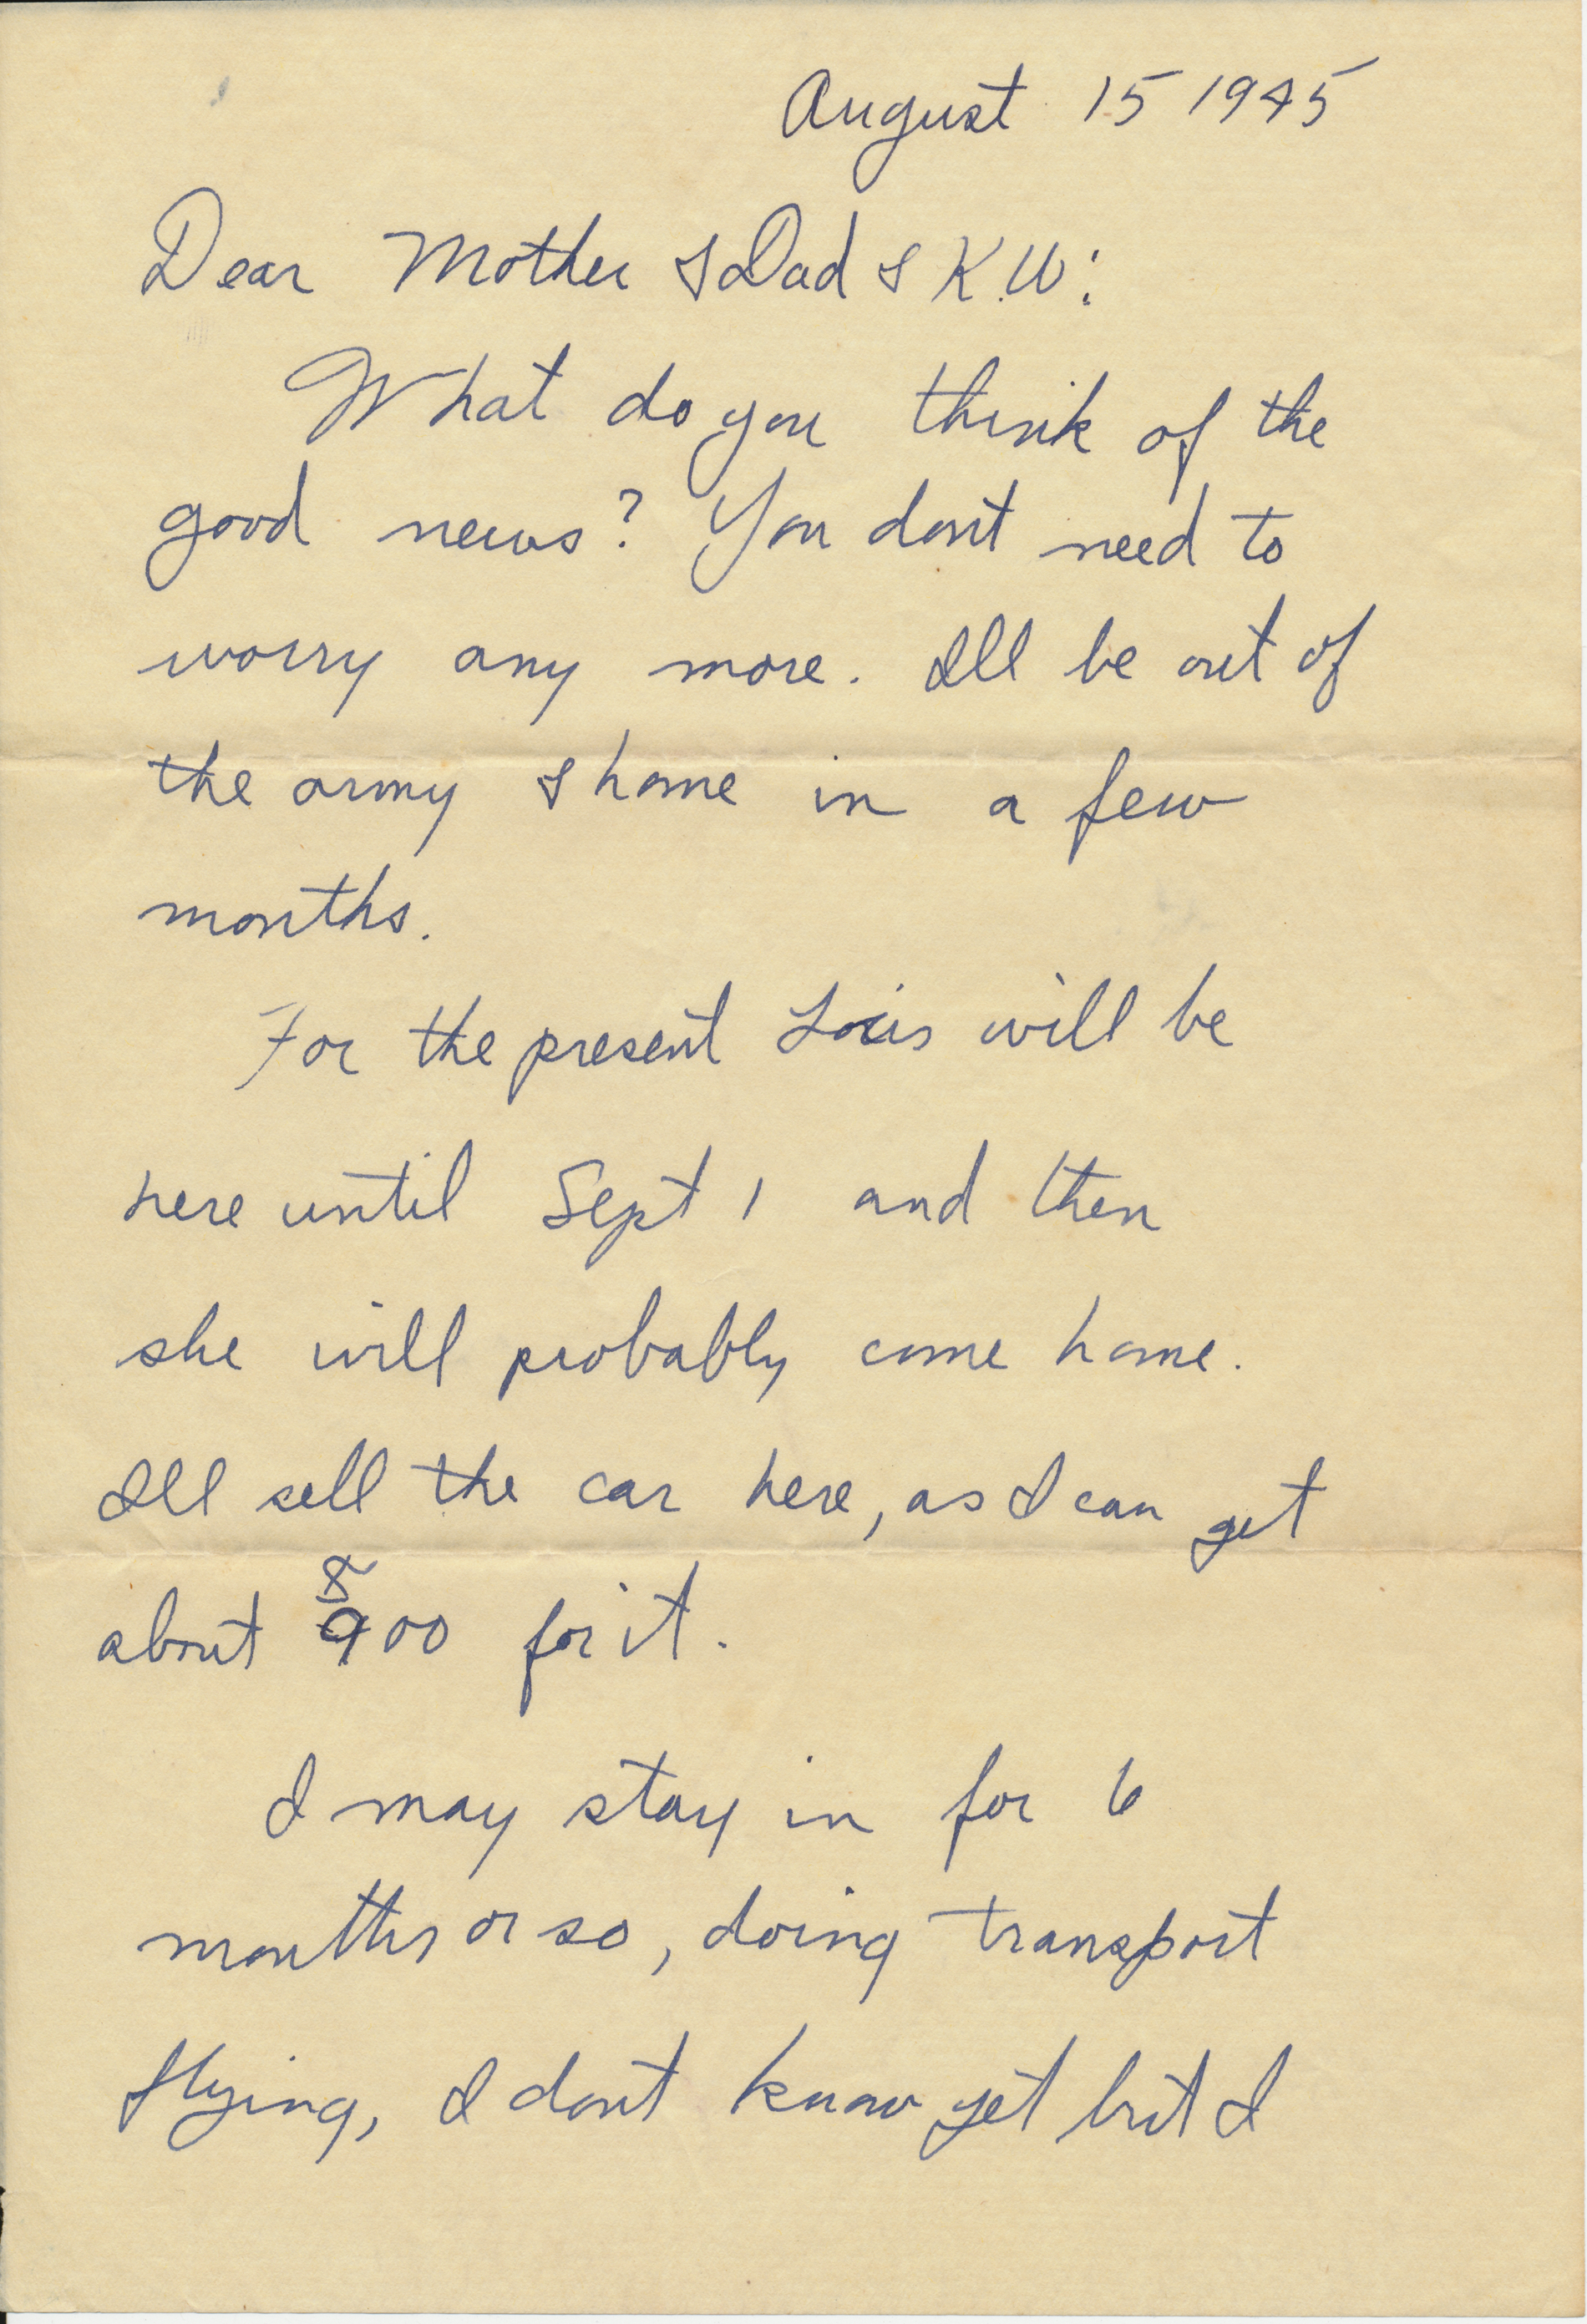 August 15 1945
Dear Mother & Dad & K.W:
What do you think of the
good news? You dont need to
worry any more. Ill be out of
the army & home in a few
months.
For the present Lois will be
here until Sept 1 and then
she will probably come home.
Ill sell the car here, as I can get
about 800 for it.
I may stay in for 6
months or so, doing transport
flying, I dont know yet but I